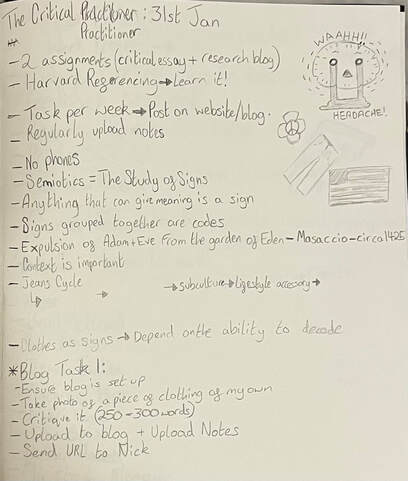 The Critical Practitioner: 31st Jan
Practitioner
WAAHH!!
HEADACHE!
*
- 2 assignments (critical essay + research blog)
- Harvard Referencing → Learn it!
- Task per week → Post on website/blog.
- Regularly upload notes
- No phones
- Semiotics = The Study of Signs
- Anything that can give meaning is a sign
- Signs grouped together are codes
- Expulsion of Adam + Eve from the garden of Eden - Masaccio - circa 1425
- Context is important
- Jeans Cycle
↳ → → subculture → lifestyle accessory →
- Clothes as signs → Depend on the ability to decode
* Blog Task 1:
- Ensure blog is set up
- Take photo of a piece of clothing of my own
- Critique it (250-300 words)
- Upload to blog + Upload Notes
- Send URL to Nick